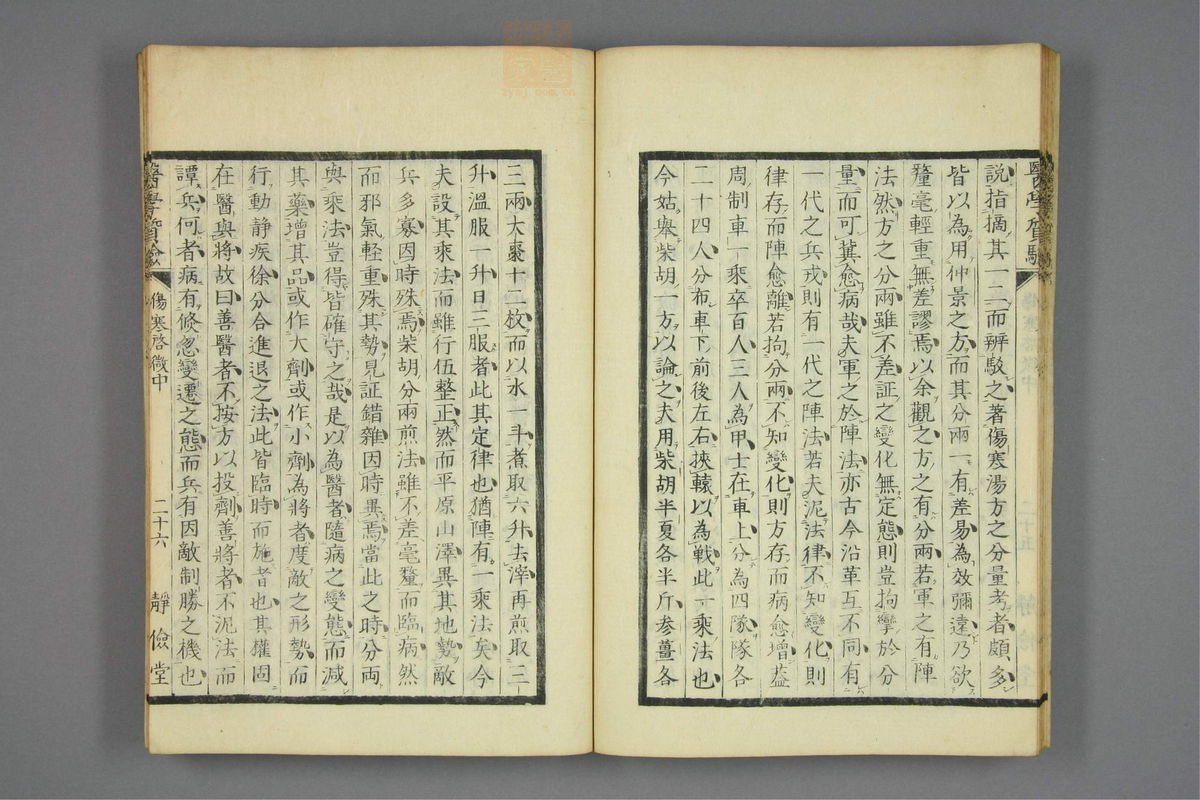 說指摘其一二而辨駁之著傷寒湯方之分量考者頗多
皆以為用仲景之方而其分兩一有差易為效彌遠乃欲
釐毫輕重無差謬焉以余觀之方之有分兩若軍之有陣
法然方之分兩雖不差証之變化無定態則豈拘攣於分
量而可冀愈病哉夫軍之於陣法亦古今沿革互不同有
一代之兵戎則有一代之陣法若夫泥法律不知變化則
律存而陣愈離若拘分兩不知變化則方存而病愈增蓋
周制車一乘卒百人三人為甲士在車上分為四隊隊各
二十四人分布車下前後左右挾轅以為戰此一乘法也
今姑舉柴胡一方以論之夫用柴胡半夏各半斤参薑各
三兩大棗十二枚而以水一斗煮取六升去滓再煎取三
升溫服一升日三服者此其定律也猶陣有一乘法矣今
夫設其乘法而雖行伍整正然而平原山澤異其地勢敵
兵多寡因時殊焉柴胡分兩煎法雖不差毫釐而臨病然
而邪氣軽重殊其勢見証錯雜因時異焉當此之時分両
與乘法豈得皆確守之哉是以為醫者隨病之變態而減
其藥增其品或作大劑或作小劑為將者度敵之形勢而
行動靜疾徐分合進退之法此皆臨時而施者也其權固
在醫與將故曰善醫者不按方以投劑善將者不泥法而
譚兵何者病有倏忽變遷之態而兵有因敵制勝之機也
醫學質驗 傷寒啓微中 二十六 靜儉堂